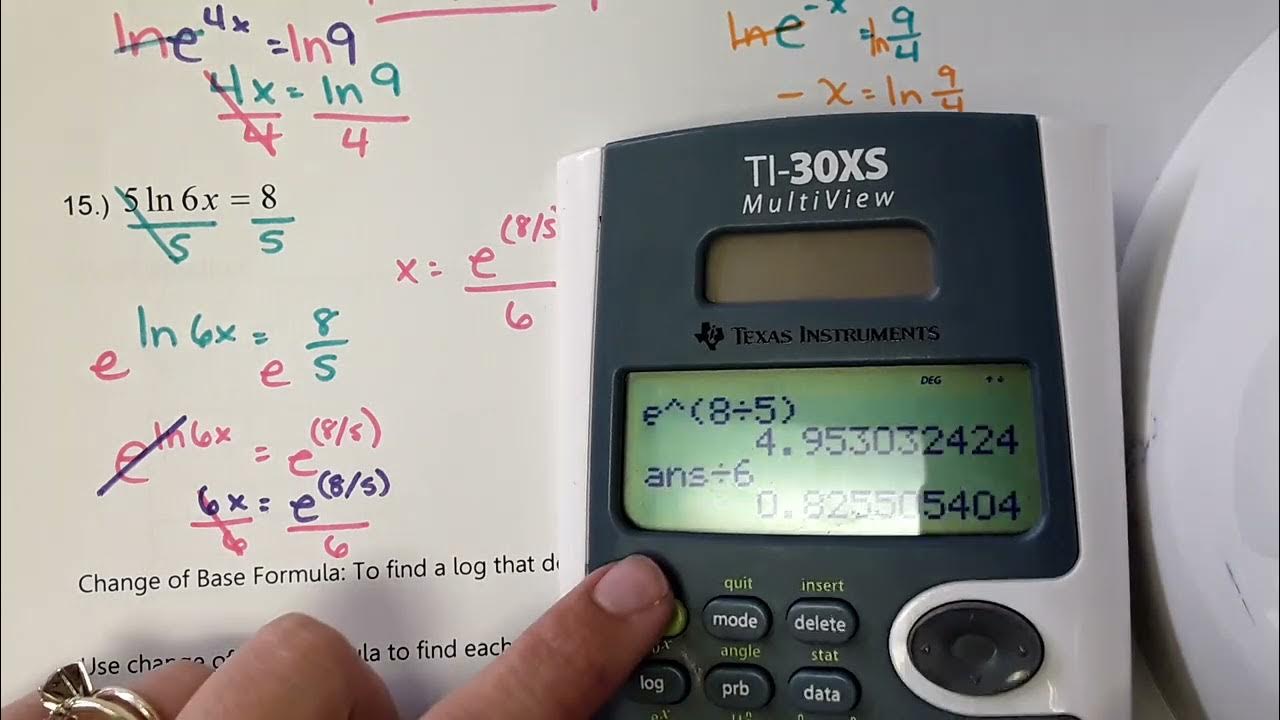 ln e^4x = ln 9
4x = ln 9
4 4
ln e^-x = ln 9/4
- x = ln 9/4
15.) 5 ln 6x = 8
5 5
x = e^(8/5
6
e^ln 6x = e^8/5
e^ln 6x = e^(8/5)
6x = e^(8/5)
6 6
Change of Base Formula: To find a log that
to find each
TI-30XS
MultiView
TEXAS INSTRUMENTS
DEG
e^(8÷5)
4.953032424
ans÷6
0.825505404
quit insert
mode delete
angle stat
log prb data